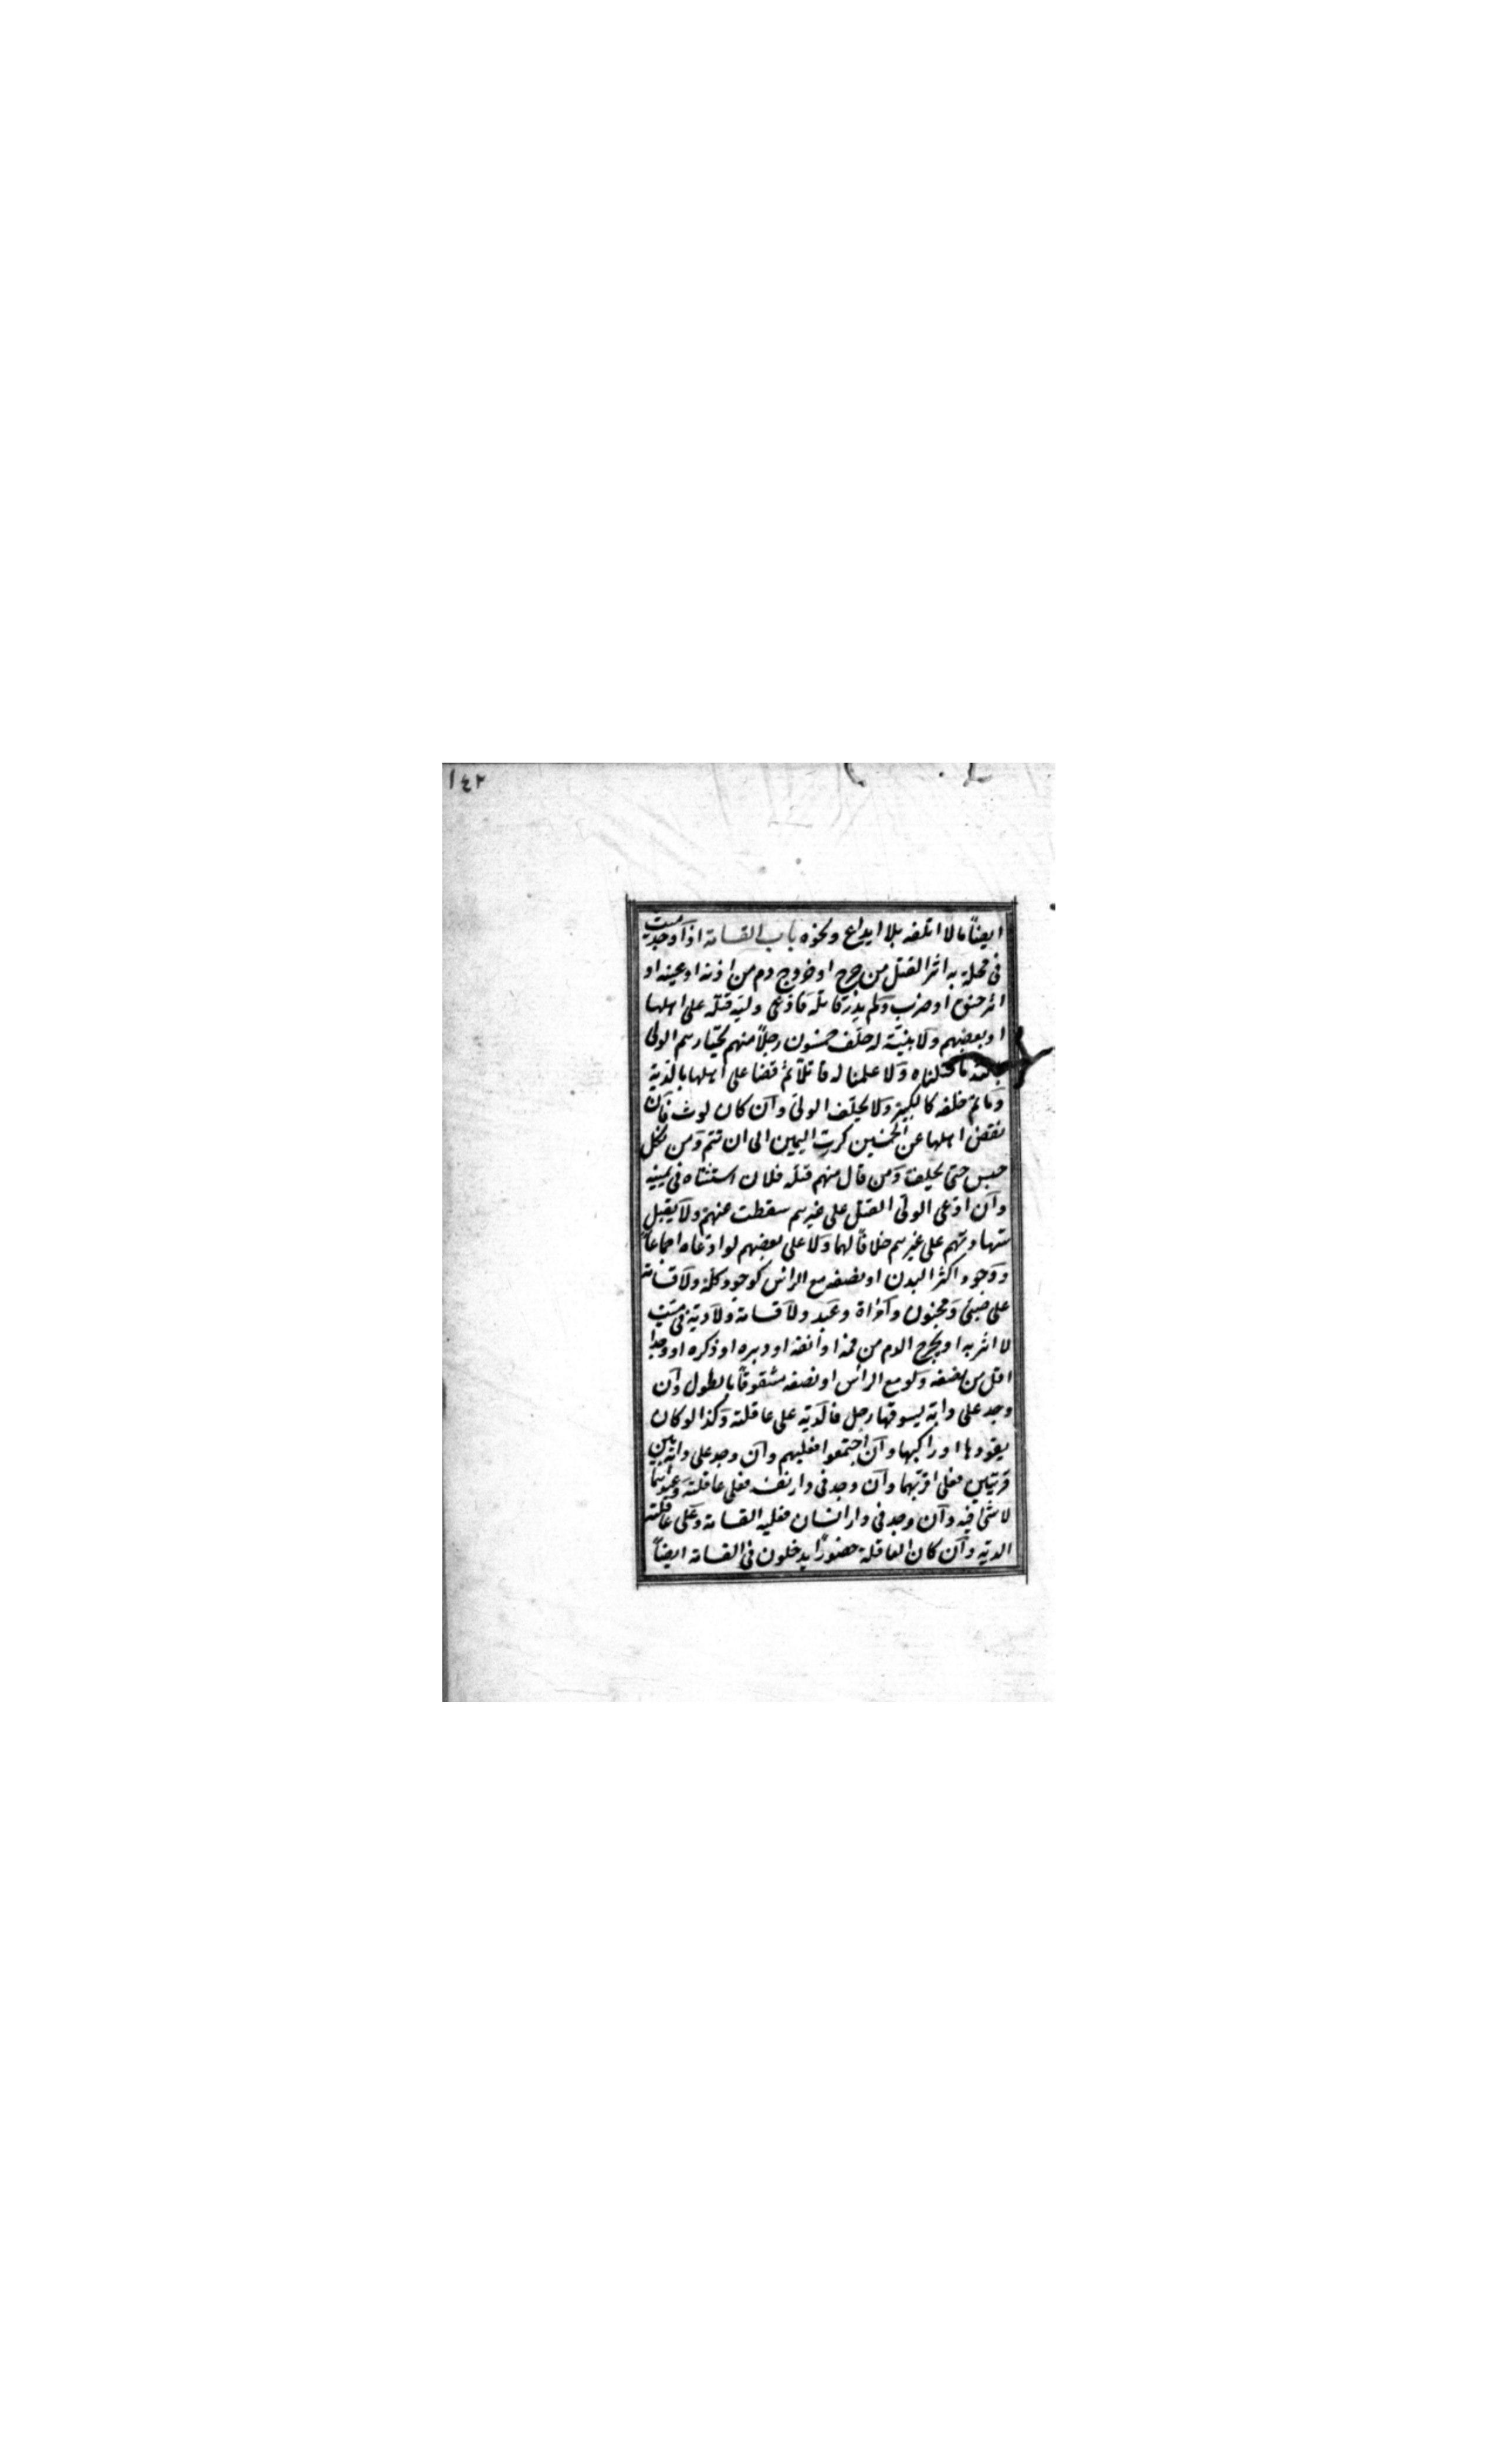 ١٤٢
ايضاً مالا اتلفه بلا ايداع ونحوه باب القسامة اذا وجد ميت
فى محلة به اثر القتل من جرح او خروج دم من اذنه او عينه او
اثر خنق او ضرب ولم يدر قاتله فادعى وليه قتله على اهلها
او بعضهم ولا بينة له حلف خمسون رجلاً منهم يختارهم الولى
بالله ما قتلناه ولا علمنا له قاتلاً ثم قضا على اهلها بالدية
وما تم حلفه كالكبير ولا يحلف الولى وان كان لوث فان
نقص اهلها عن الخمسين كررت اليمين الى ان تتم ومن نكل
حبس حتى يحلف ومن قال منهم قتله فلان استثناه فى يمينه
وان ادعى الولى القتل على غيرهم سقطت عنهم ولا يقبل
شهادتهم على غيرهم خلافاً لهما ولا على بعضهم لو ادعاه اجماعاً
ووجود اكثر البدن او نصفه مع الراس كوجود كله ولا قسامة
على صبى ومجنون وامراة وعبد ولا قسامة ولا دية فى ميت
لا اثر به او يخرج الدم من فمه او انفه او دبره او ذكره او وجد
اقل من نصفه ولو مع الراس او نصفه مشقوقاً بالطول وان
وجد على دابة يسوقها رجل فالدية على عاقلته وكذا لو كان
يقودها او راكبها وان اجتمعوا فعليهم وان وجد على دابة بين
قريتين فعلى اقربهما وان وجد فى دار نفسه فعلى عاقلته وعندهما
لا شئ فيه وان وجد فى دار انسان فعليه القسامة وعلى عاقلته
الدية وان كان العاقلة حضوراً يدخلون فى القسامة ايضاً